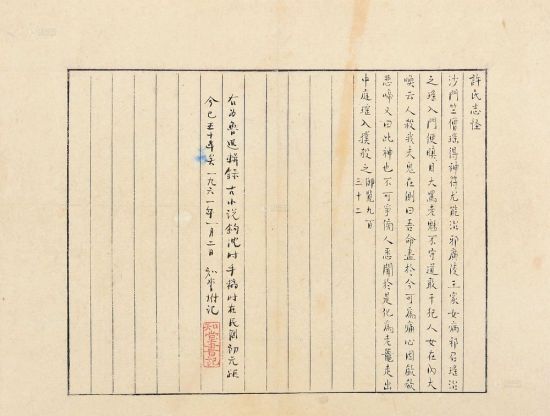 許氏志怪
沙門竺僧瑤得神符尤能治邪廣陵王家女病邪召瑤治
之瑤入門便瞋目大罵老魅不守道敢干犯人女在內大
喚云人殺我夫鬼在側曰吾命盡於今可為痛心因歔欷
悲啼又曰此神也不可爭傍人悉聞於是化為老鼉走出
中庭瑤入撲殺之御覽九百三十二
右為魯迅輯錄古小說鉤沈時手稿時在民國初元距
今已五十年矣一九六一年一月二日知堂附記
知堂書記